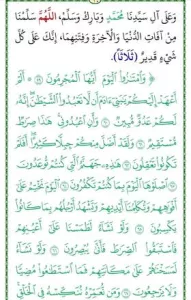 وَعَلَى آلِ سَيِّدِنَا مُحَمَّدٍ وَبَارِكْ وَسَلِّمْ، اَللّٰهُمَّ سَلِّمْنَا
مِنْ آفَاتِ الدُّنْيَا وَالْآخِرَةِ وَفِتْنَتِهِمَا، إِنَّكَ عَلَى كُلِّ
شَيْءٍ قَدِيرٌ (ثَلَاثًا).
﴿ وَٱمْتَٰزُوا۟ ٱلْيَوْمَ أَيُّهَا ٱلْمُجْرِمُونَ ۝ أَلَمْ
أَعْهَدْ إِلَيْكُمْ يَٰبَنِىٓ ءَادَمَ أَن لَّا تَعْبُدُوا۟ ٱلشَّيْطَٰنَ إِنَّهُۥ
لَكُمْ عَدُوٌّ مُّبِينٌ ۝ وَأَنِ ٱعْبُدُونِى هَٰذَا صِرَٰطٌ
مُّسْتَقِيمٌ ۝ وَلَقَدْ أَضَلَّ مِنكُمْ جِبِلًّا كَثِيرًا أَفَلَمْ
تَكُونُوا۟ تَعْقِلُونَ ۝ هَٰذِهِۦ جَهَنَّمُ ٱلَّتِى كُنتُمْ تُوعَدُونَ
۝ ٱصْلَوْهَا ٱلْيَوْمَ بِمَا كُنتُمْ تَكْفُرُونَ ۝ ٱلْيَوْمَ نَخْتِمُ عَلَىٰٓ
أَفْوَٰهِهِمْ وَتُكَلِّمُنَآ أَيْدِيهِمْ وَتَشْهَدُ أَرْجُلُهُم بِمَا كَانُوا۟
يَكْسِبُونَ ۝ وَلَوْ نَشَآءُ لَطَمَسْنَا عَلَىٰٓ أَعْيُنِهِمْ
فَٱسْتَبَقُوا۟ ٱلصِّرَٰطَ فَأَنَّىٰ يُبْصِرُونَ ۝ وَلَوْ نَشَآءُ
لَمَسَخْنَٰهُمْ عَلَىٰ مَكَانَتِهِمْ فَمَا ٱسْتَطَٰعُوا۟ مُضِيًّا
وَلَا يَرْجِعُونَ ۝ وَمَن نُّعَمِّرْهُ نُنَكِّسْهُ فِى ٱلْخَلْقِ